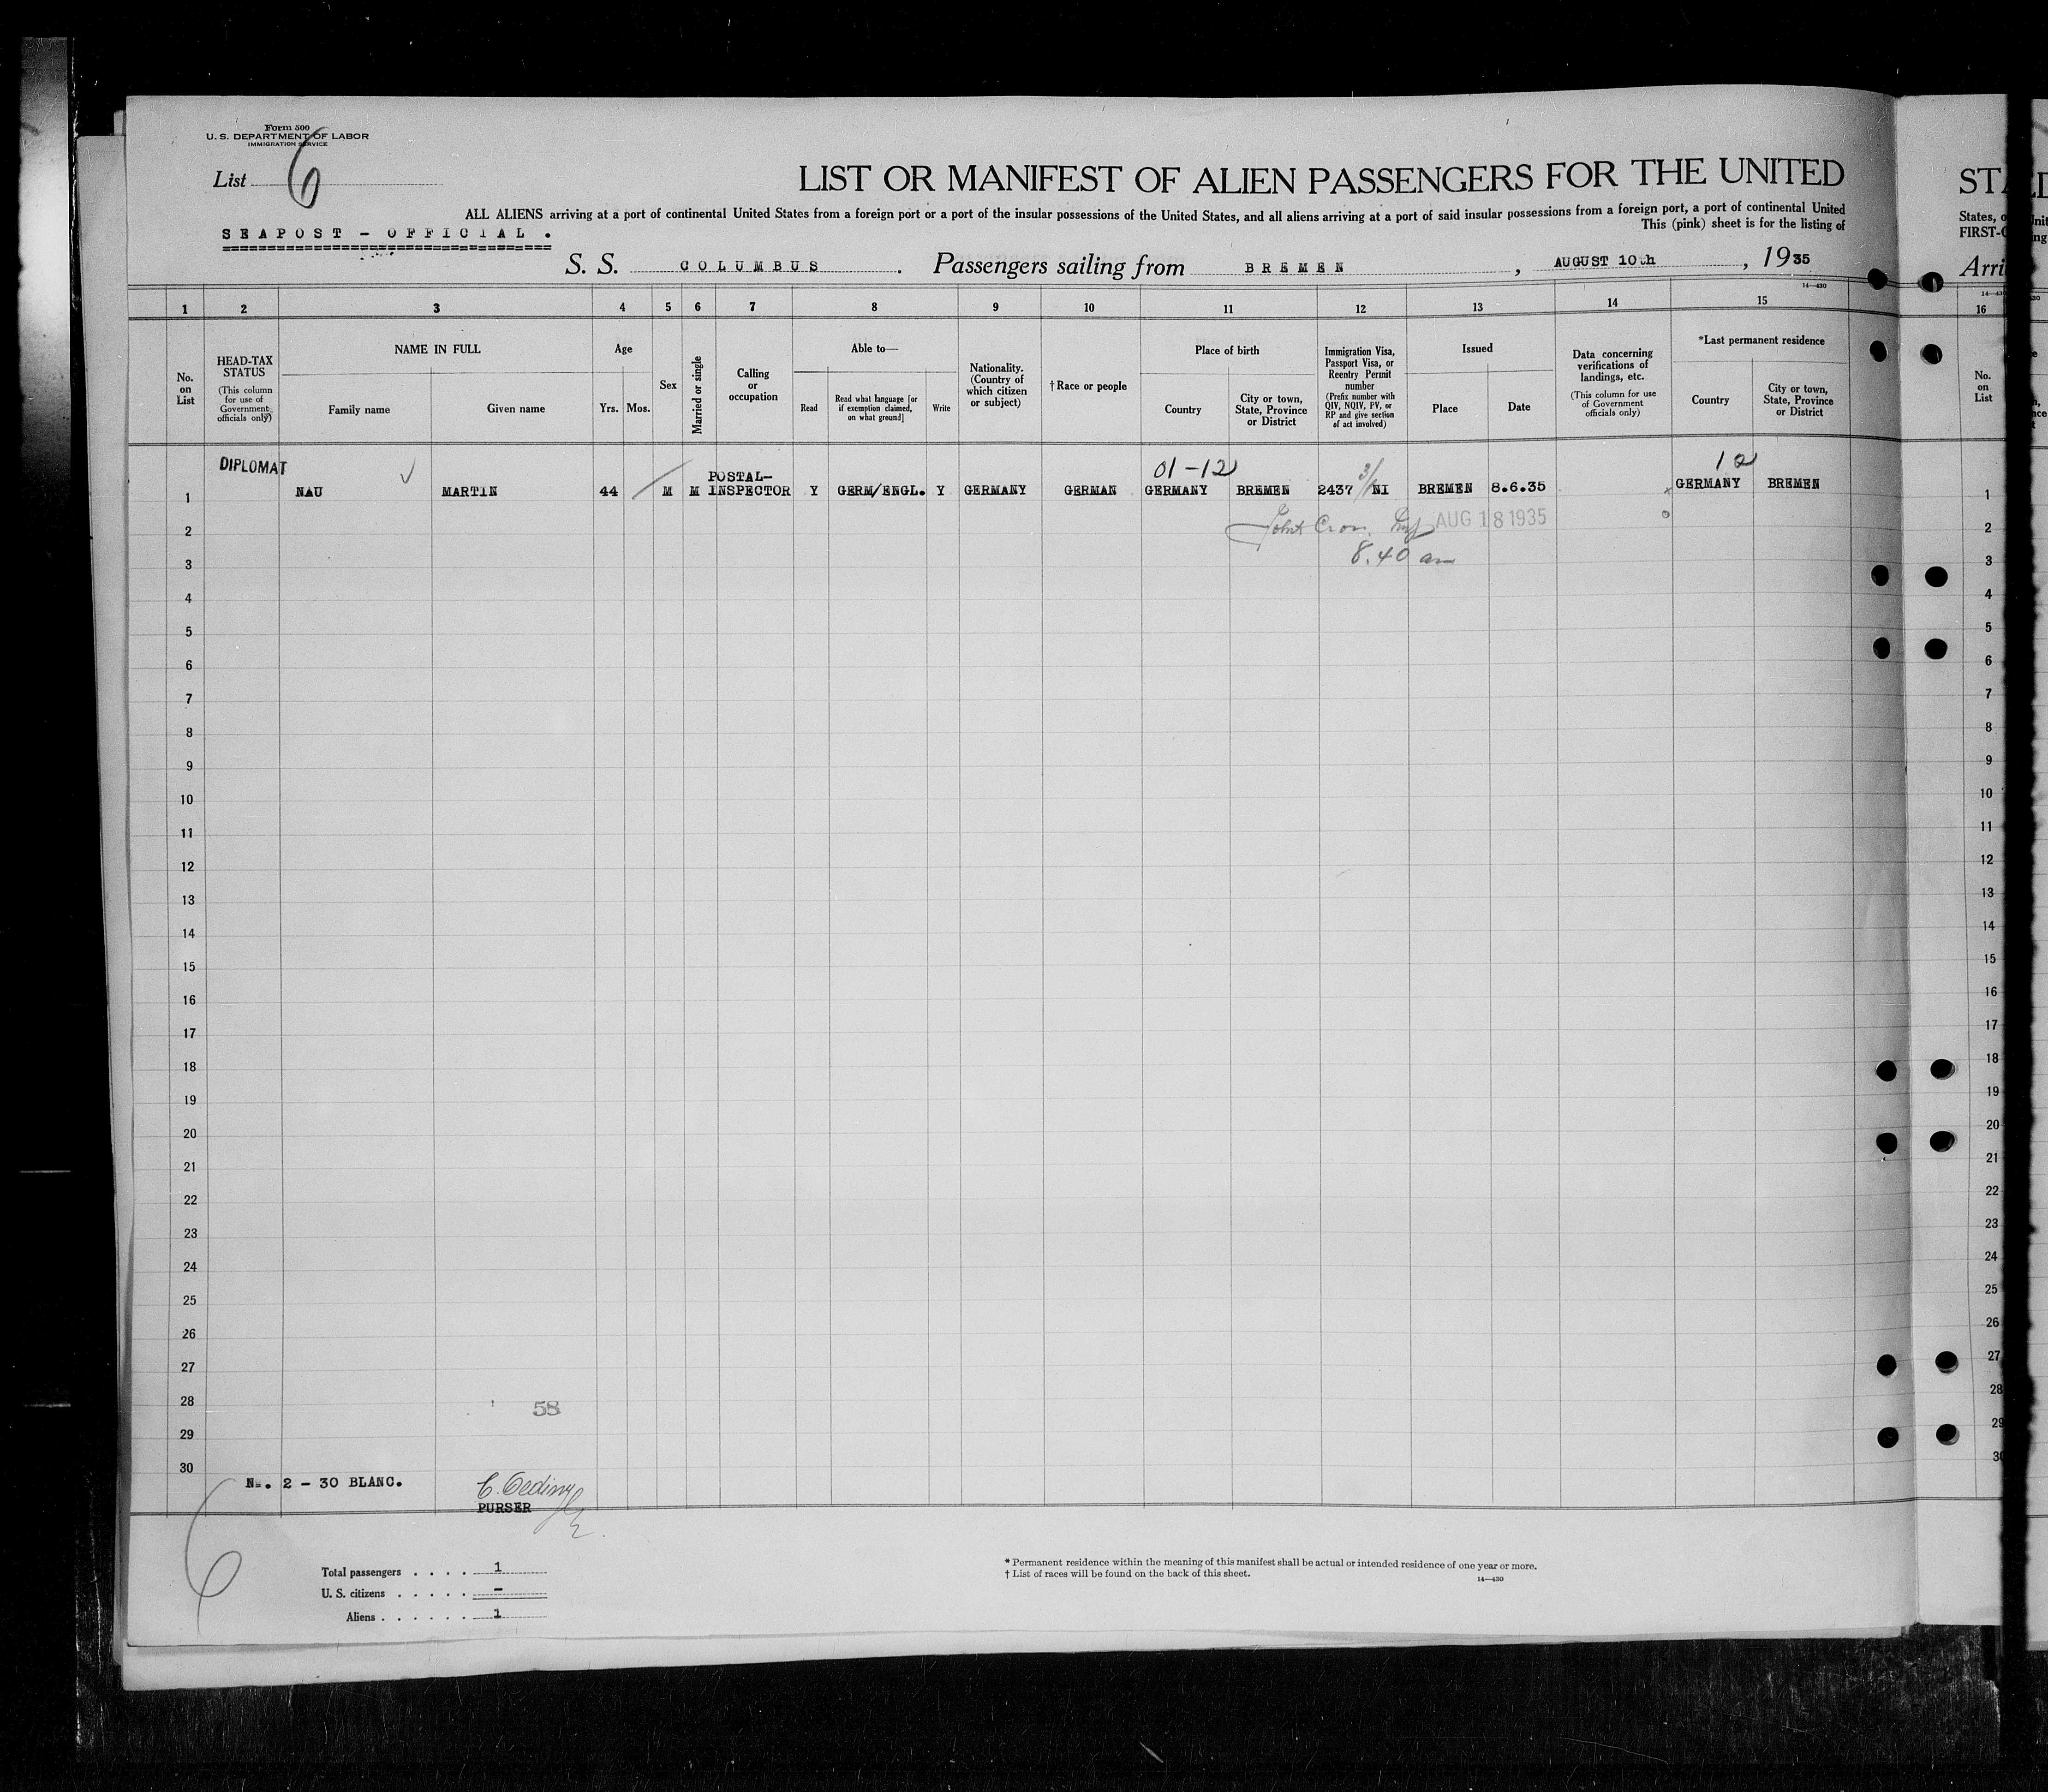 Form 500
U. S. DEPARTMENT OF LABOR
IMMIGRATION SERVICE
List 6
LIST OR MANIFEST OF ALIEN PASSENGERS FOR THE UNITED
ALL ALIENS arriving at a port of continental United States from a foreign port or a port of the insular possessions of the United States, and all aliens arriving at a port of said insular possessions from a foreign port, a port of continental United
This (pink) sheet is for the listing of
SEAPOST - OFFICIAL .
S. S. COLUMBUS . Passengers sailing from BREMEN , AUGUST 10th , 1935
14—430
1 2 3 4 5 6 7 8 9 10 11 12 13 14 15
No. on List
HEAD-TAX STATUS
(This column for use of Government officials only)
NAME IN FULL
Family name Given name
Age
Yrs. Mos.
Sex
Married or single
Calling or occupation
Able to—
Read
Read what language [or if exemption claimed, on what ground]
Write
Nationality. (Country of which citizen or subject)
†Race or people
Place of birth
Country
City or town, State, Province or District
Immigration Visa, Passport Visa, or Reentry Permit number
(Prefix number with QIV, NQIV, PV, or RP and give section of act involved)
Issued
Place Date
Data concerning verifications of landings, etc.
(This column for use of Government officials only)
*Last permanent residence
Country
City or town, State, Province or District
DIPLOMAT
01-12
12
1 NAU MARTIN 44 M M POSTAL-INSPECTOR Y GERM/ENGL. Y GERMANY GERMAN GERMANY BREMEN 2437 3/1 NI BREMEN 8.6.35 GERMANY BREMEN
AUG 18 1935
8.40 am
2
3
4
5
6
7
8
9
10
11
12
13
14
15
16
17
18
19
20
21
22
23
24
25
26
27
28
58
29
30
No. 2 - 30 BLANC.
PURSER
6
Total passengers . . . . 1
U. S. citizens . . . . . -
Aliens . . . . . . 1
* Permanent residence within the meaning of this manifest shall be actual or intended residence of one year or more.
† List of races will be found on the back of this sheet.
14—430
STA
States, o
FIRST-C
Arri
16
No. on List
1
2
3
4
5
6
7
8
9
10
11
12
13
14
15
16
17
18
19
20
21
22
23
24
25
26
27
28
29
30